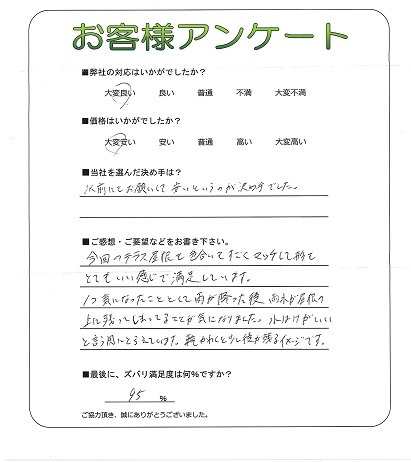 お客様アンケート
■弊社の対応はいかがでしたか？
大変良い 良い 普通 不満 大変不満
■価格はいかがでしたか？
大変安い 安い 普通 高い 大変高い
■当社を選んだ決め手は？
以前にもお願いして安いというのが決め手でした。
■ご感想・ご要望などをお書き下さい。
今回のテラス屋根も色合いすごくマッチして
とてもいい感じで満足しています。
1つ気になったこととして雨が降った後 雨水が屋根の
上に残ってしまってることが気になりました。水はけがいい
と言う風にとらえています。乾かわくと少し後が残るイメージです。
■最後に、ズバリ満足度は何%ですか？
95 %
ご協力頂き、誠にありがとうございました。